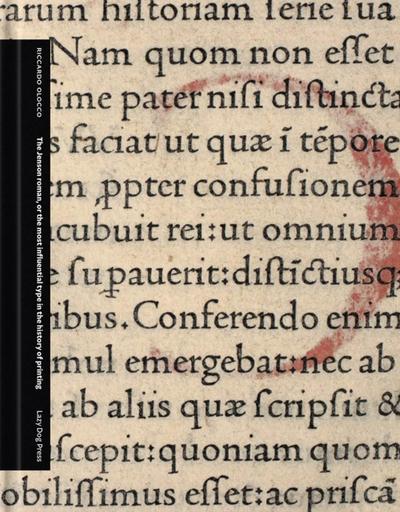 rarum hiſtoriam ſerie ſua
Nam quom non eſſet
ſime pater niſi diſtincta
s faciat ut quæ ī tēpore
em ꝓpter confuſionem
cubuit rei:ut omnium
e ſupauerit:diſtīctiusq;
ibus. Conferendo enim
mul emergebat:nec ab
ab aliis quæ ſcripſit &
ſcepit:quoniam quom
obiliſſimus eſſet:ac priſcā
RICCARDO OLOCCO
The Jenson roman, or the most influential type in the history of printing
Lazy Dog Press